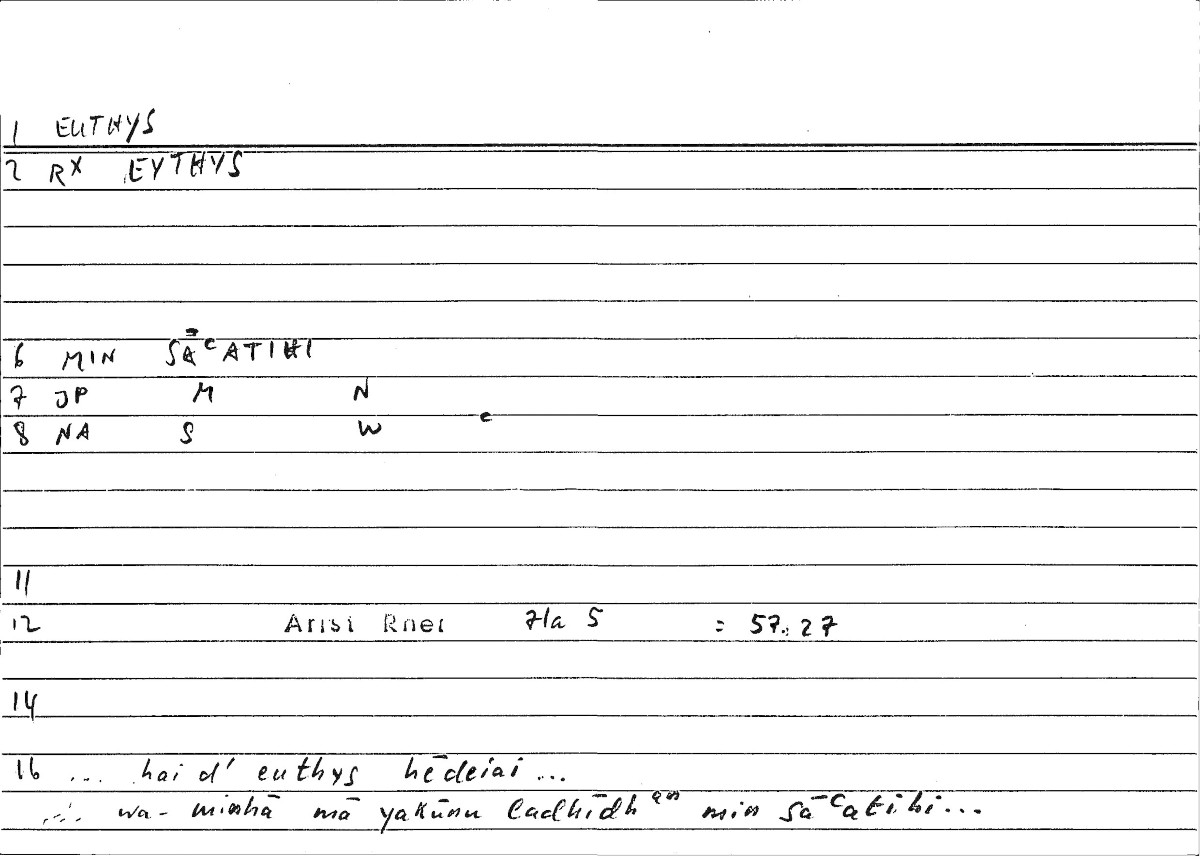 1 EUTHYS
2 RX EYTHYS
6 MIN SĀᶜATIHI
7 JP M N
8 NA S W c
11
12 Arist Rhet 71a 5 = 57.27
14
16 ... hai d' euthys hēdeiai ...
... wa- minhā mā yakūnu ladhīdhᵃⁿ min sāᶜatihi...